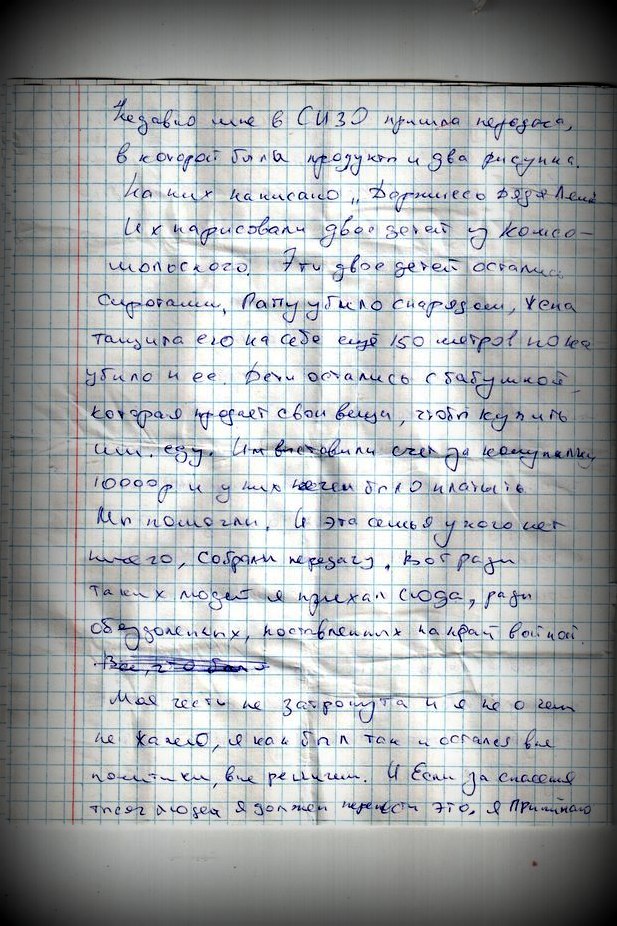 Недавно мне в СИЗО пришла передача,
в которой были продукты и два рисунка.
На них написано „ Держись Дядя Леня
Их нарисовали двое детей из Комсо-
мольского. Эти двое детей остались
сиротами, Папу убило снарядом, жена
тащила его на себе ещё 150 метров пока
убило и ее. Дети остались с бабушкой,
которая продает свои вещи, чтобы купить
им еду. Им выставили счет за комуналку
10000р и у них нечем было платить
Мы помогли. И эта семья у кого нет
ничего, собрали передачу. Вот ради
таких людей я приехал сюда, ради
обездоленных, поставленных на край войной.
Моя честь не затронута и я не о чем
не жалею, я как был так и остался вне
политики, вне религии. И Если за спасения
тысяч людей я должен перенести это, я принимаю